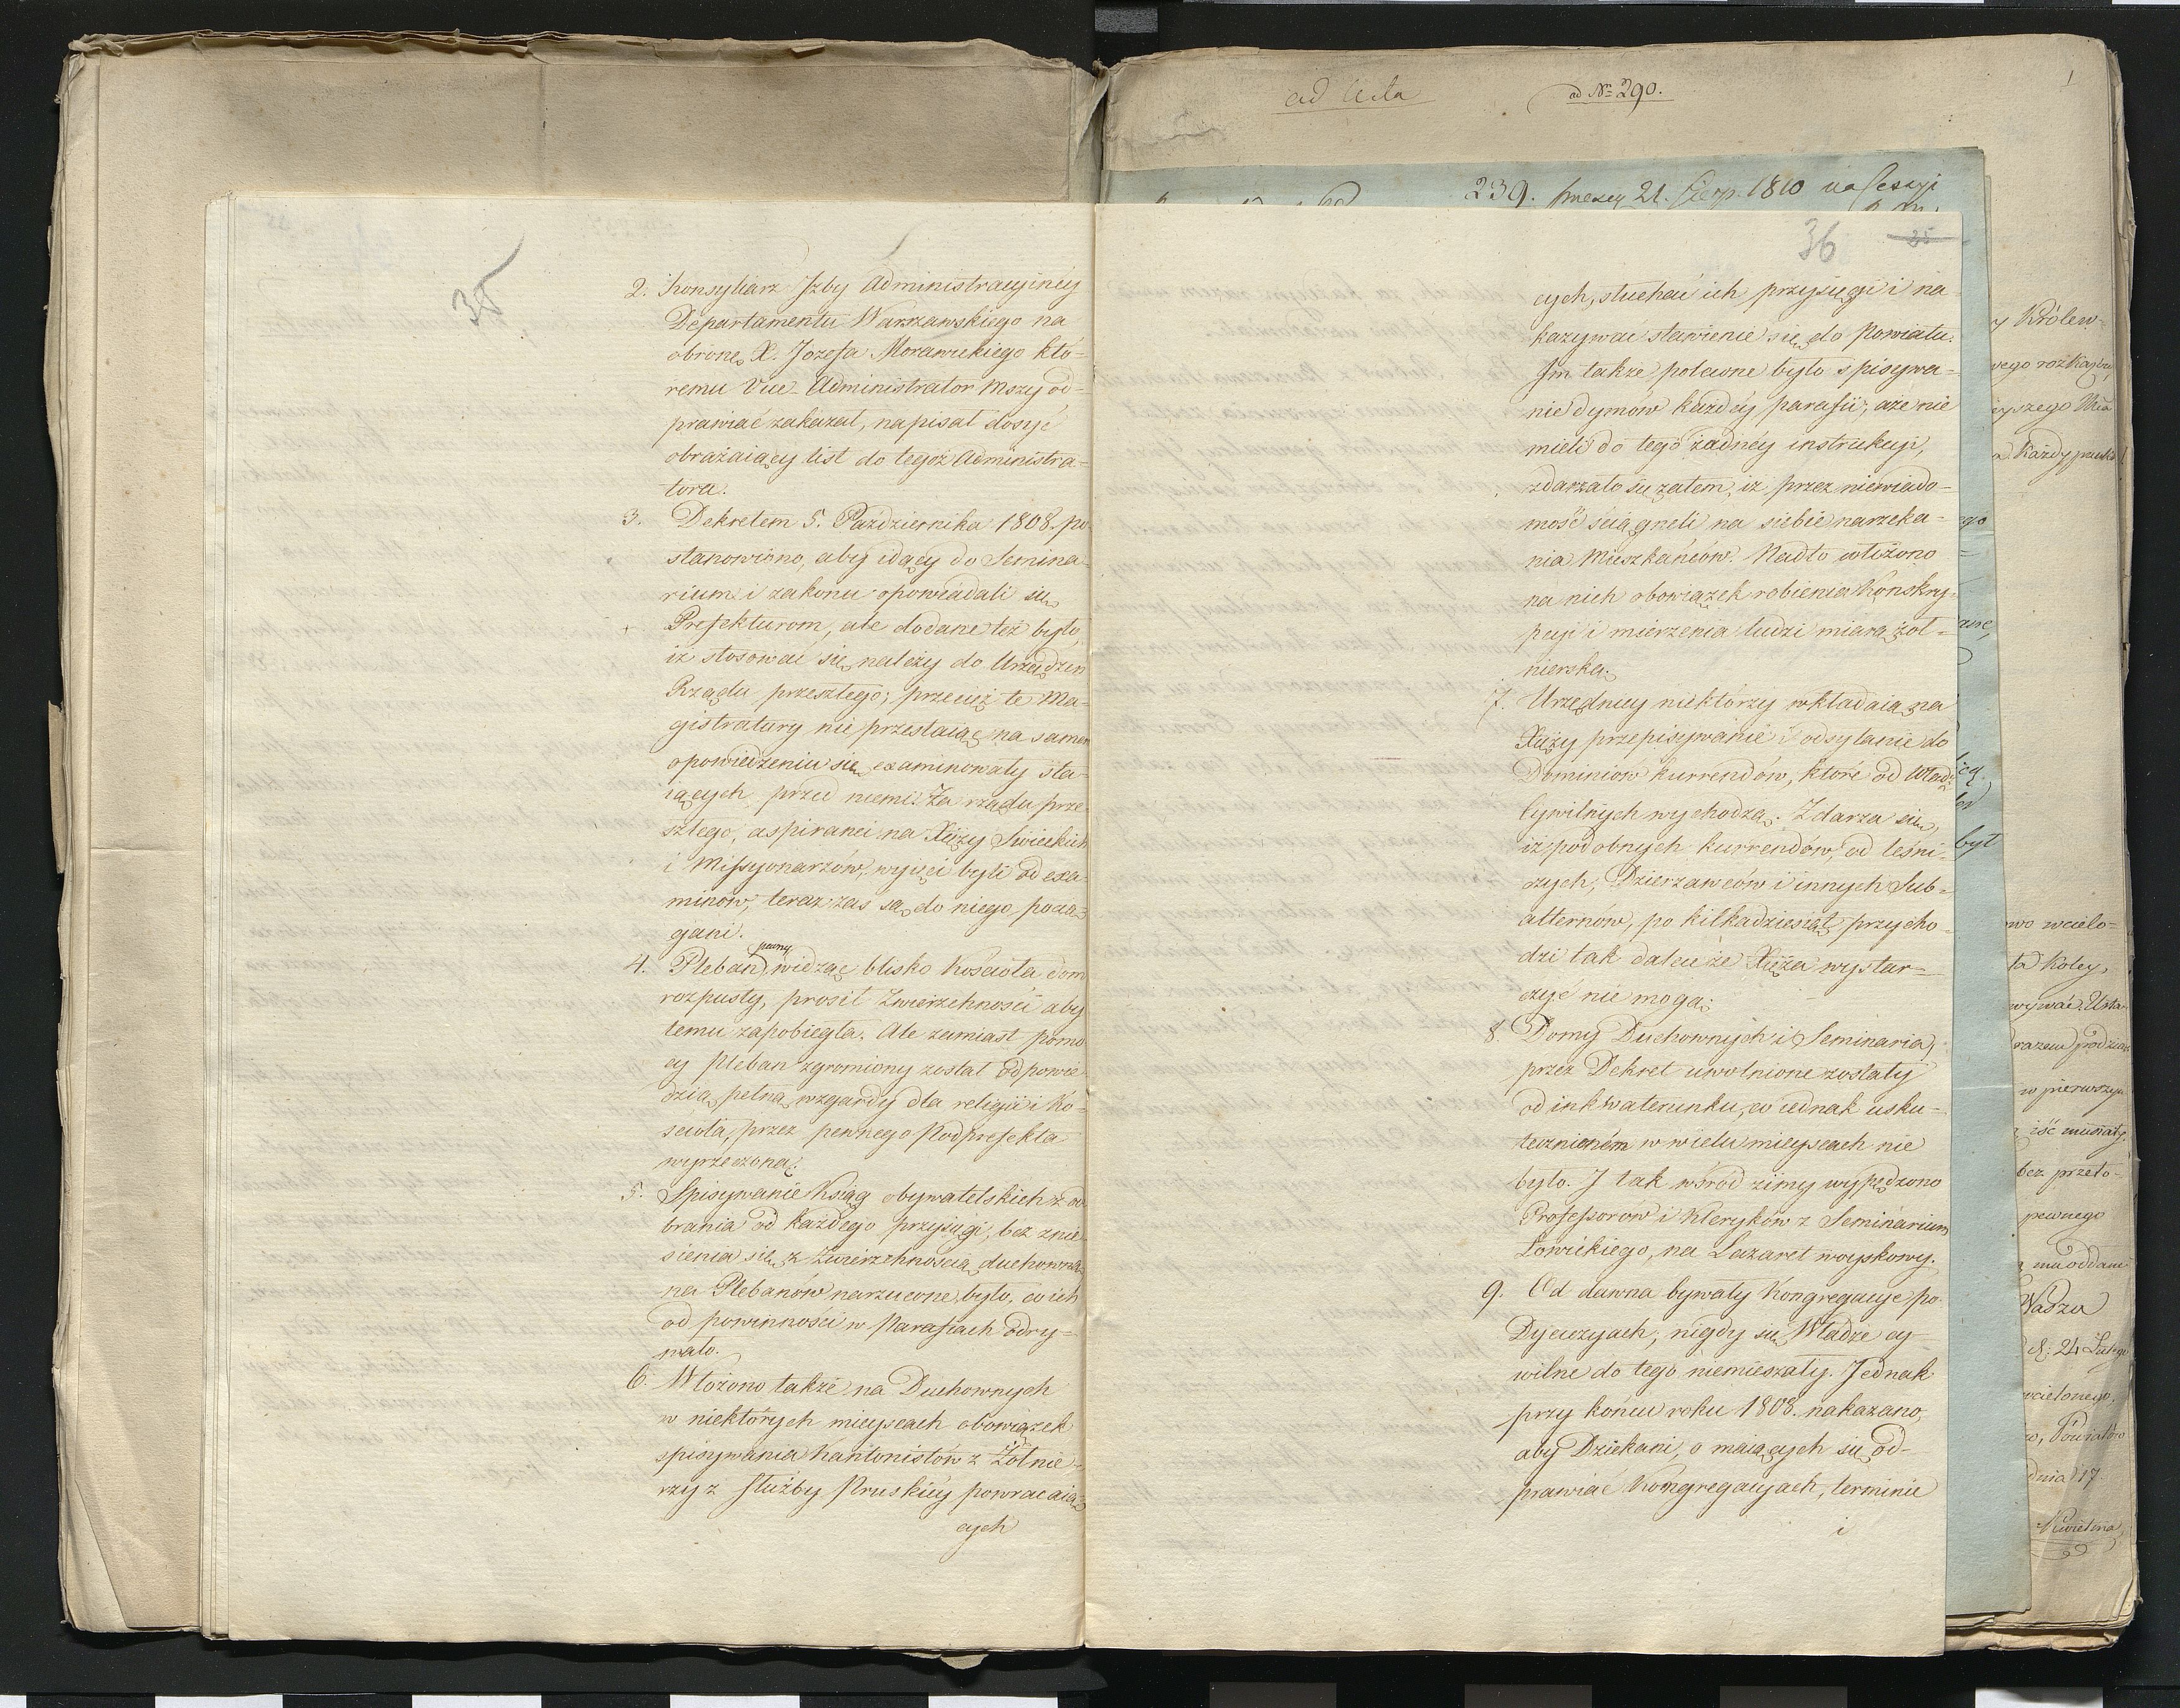 35
2. Konsyliarz Jzby Administracyiney
Departamentu Warszawskiego na
obronę X. Jozefa Morawickiego któ-
remu Vice-Administrator Mszy od-
prawiać zakazał, napisał dosyć
obrażaiący list do tegoż Administra-
tora.
3. Dekretem 5. Października 1808. po-
stanowiono, aby idący do Semina-
rium i zakonu opowiadali się
Prefekturom, ale dodane też było,
iż stosować się należy do Urządzen
Rządu przeszłego; przecież te Ma-
gistratury nie przestaiąc na samem
opowiedzeniu się examinowały sta-
iących przed niemi. Za rządu prze-
szłego, aspiranci na Xięży Swieckich
i Missyonarzów, wyięci byli od exa-
minów, teraz zas są do niego pocią-
gani.
4. Pleban pewny widząc blisko Kościoła dom
rozpusty, prosił Zwierzchności aby
temu zapobiegła. Ale zamiast pomo-
cy Pleban zgromiony został odpowie-
dzią pełną wzgardy dla religii i Ko-
scioła, przez pewnego Podprefekta
wyrzeczoną.
5. Spisywanie Ksiąg obywatelskich z ode-
brania od każdego przysięgi, bez znie-
sienia się z Zwierzchnością duchowną
na Plebanów narzucone było, co ich
od powinności w Parafiach odry-
wało.
6. Włożono także na Duchownych
w niektórych mieyscach obowiązek
spisywania Kantonistów z Żołnie-
rzy z służby Pruskiey powracaią-
cych
ad Acta
ad Nr 290.
1
239. 21. Sierp. 1810 na Sessyi
36 25
cych, słuchać ich przysięgi i na-
kazywać stawienie się do Powiatu.
Jm także polecone było spisywa-
nie dymów każdey parafii; aże nie
mieli do tego żadney instrukcyi,
zdarzało się zatem, iż przez niewiado-
mość sciągneli na siebie narzeka-
nia Mieszkańców. Nadto włożono
na nich obowiązek robienia Konskry-
pcyi i mierzenia ludzi miarą żoł-
nierską.
7. Urzędnicy niektórzy wkładaią na
Xięży przepisywanie i odsyłanie do
Dominiów kurrendów, które od Władz
Cywilnych wychodzą. Zdarza się,
iż podobnych kurrendów, od leśni-
czych, Dzierzawców i innych Sub-
alternów, po kilkadziesiąt przycho-
dzi tak dalece że Xięża wystar-
czyć nie mogą.
8. Domy Duchownych i Seminaria,
przez Dekret uwolnione zostały
od inkwaterunku, co iednak usku-
tecznioném w wielu mieyscach nie
było. J tak wśród zimy wypędzono
Professorow i Kleryków z Seminarium
Łowickiego, na Lazaret woyskowy.
9. Od dawna bywały Kongregacye po
Dyecezyach, nigdy się Władze cy-
wilne do tego niemieszały. Jednak
przy końcu roku 1808. nakazano,
aby Dziekani, o maiących się od-
prawiać Kongregacyach, terminie
i
y Królew-
wego rozkazu
byt
wo wcielo-
w pierwszym
iść musiały
bez przeto-
pewnego
mu oddane
Wasza
d: 24 Lutego
wcielonego,
w, Powiatów
dnia 17.
Kwietnia